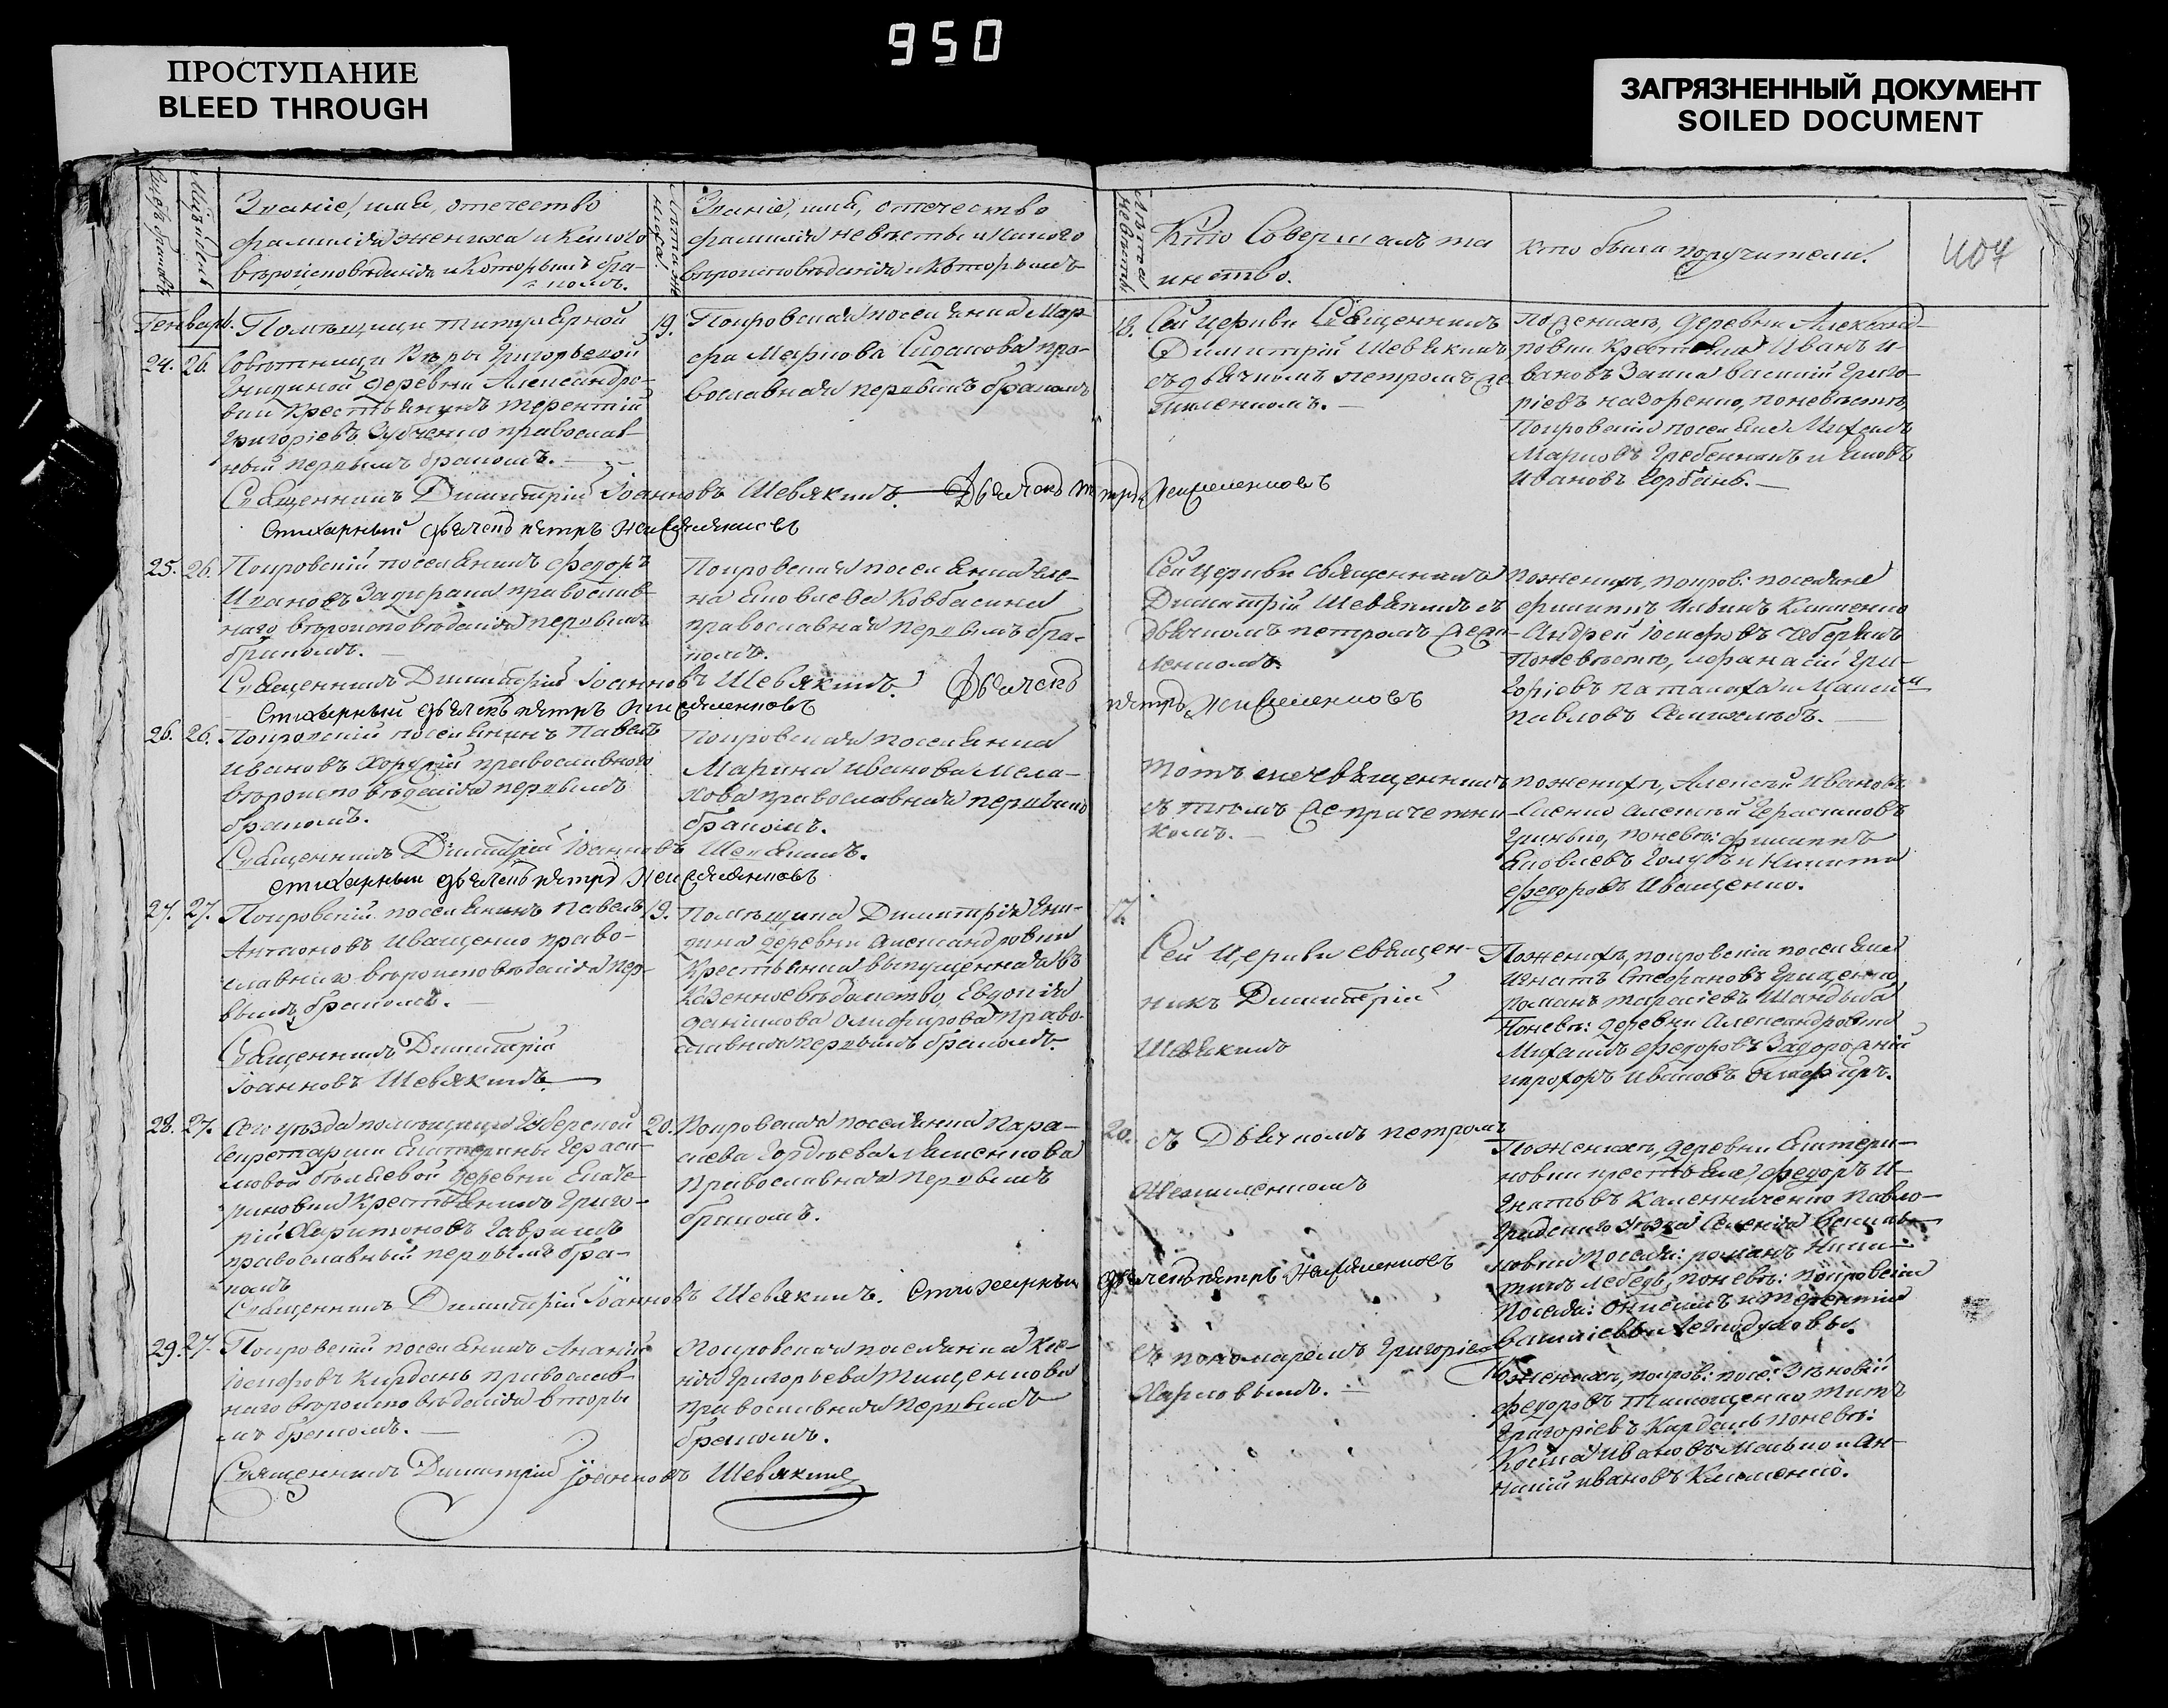 950
ПРОСТУПАНИЕ
BLEED THROUGH
ЗАГРЯЗНЕННЫЙ ДОКУМЕНТ
SOILED DOCUMENT
407
Званіе, имя, отечество
фамилія жениха и коего
вѣроисповѣданія и которымъ бра-
комъ.
Званіе, имя, отечество
фамилія невѣсты и коего
вѣроисповѣданія и которымъ
Кто Совершалъ та
инство.
Кто были поручители.
Генварь.
24. 26.
Помѣщицы титулярной
Совѣтницы Вѣры Григорьевой
деревни Александро-
вки крестьянинъ Терентій
Григоріевъ Зубченко православ-
ный первымъ бракомъ.
19.
Покровская поселянка Мар-
фа Маркова Сидакова пра-
вославная первымъ бракомъ
18.
Сей Церкви Священникъ
Димитрій Шевякинъ
съ дьячкомъ Петромъ
По женихѣ, деревни Александ-
ровки крестьяне Иванъ И-
вановъ Заика Василій Григо-
ріевъ Назаренко, по невѣстѣ,
Покровскіе поселяне Михаилъ
Марковъ Гребенникъ и Яковъ
Ивановъ Горбань.
Священникъ Димитрій Іоанновъ Шевякинъ. Дьячекъ Петръ
Стихарный дьячекъ Петръ
25. 26.
Покровскій поселянинъ Федоръ
Ивановъ Задирака православ-
наго вѣроисповѣданія первымъ
бракомъ.
Покровская поселянка Еле-
на Яковлева Ковбасина
православная первымъ бра-
комъ.
Сей Церкви священникъ
Димитрій Шевякинъ съ
дьячкомъ Петромъ
По женихѣ, покров: поселяне
Филиппъ Ильинъ Клименко
Андрей Іосифовъ
По невѣстѣ, Афанасій Гри-
горіевъ и
Павловъ Семихлѣбъ.
Священникъ Димитрій Іоанновъ Шевякинъ. Дьячекъ
Петръ
Стихарный дьячекъ Петръ
26. 26.
Покровскій поселянинъ Павелъ
Ивановъ православнаго
вѣроисповѣданія первымъ
бракомъ.
Покровская поселянка
Марина Иванова Мела-
хова православная первымъ
бракомъ.
Тотъ же священникъ
съ тѣмъ же причетни-
комъ.
По женихѣ, Алексѣй Ивановъ
Алексѣй Герасимовъ
Гринько, по невѣ: Филиппъ
Яковлевъ Голубъ и Никита
Федоровъ Иващенко.
Священникъ Димитрій Іоанновъ Шевякинъ.
Стихарный дьячекъ Петръ
27. 27.
Покровскій поселянинъ Павелъ
Антоновъ Иващенко право-
славнаго вѣроисповѣданія пер-
вымъ бракомъ.
19.
Помѣщика Димитрія
деревни Александровки
крестьянка выпущенная въ
казенное вѣдомство, Евдокія
Данилова Олиферова право-
славная первымъ бракомъ.
17.
Сей Церкви священ-
никъ Димитрій
Шевякинъ
По женихѣ, покровскіе поселяне
Игнатъ Стефановъ Грищенко
Романъ Тарасіевъ
По невѣ: деревни Александровки
Михаилъ Федоровъ Задорожній
и Прохоръ Ивановъ Олиферъ.
Священникъ Димитрій
Іоанновъ Шевякинъ
28. 27.
Сего уѣзда помѣщицы Губернской
Секретарши Екатерины Гераси-
мовой деревни Екате-
риновки крестьянинъ Григо-
рій Харитоновъ Гаврилъ
православный первымъ бра-
комъ
20.
Покровская поселянка Пара-
скева Гордѣева Ляшенкова
православная первымъ
бракомъ.
20.
съ Дьячкомъ Петромъ
По женихѣ, деревни Екатери-
новки крестьяне, Федоръ И-
гнатьевъ Каленниченко Павло-
градскаго уѣзда селенія
Романъ Ники-
тинъ Лебедь, по невѣ: покровскіе
посел: Онисимъ и Терентій
Священникъ Димитрій Іоанновъ Шевякинъ. Стихарный
дьячекъ Петръ
29. 27.
Покровскій поселянинъ Ананій
Іосифовъ Кирданъ православ-
наго вѣроисповѣданія вторы-
мъ бракомъ.
Покровская поселянка Ксе-
нія Григорьева Тищенкова
православная первымъ
бракомъ.
съ пономаремъ Григоріемъ
Карповымъ.
По женихѣ, покров: посе: Зѣновій
Федоровъ Тимощенко Титъ
Григоріевъ Кирданъ по невѣ:
Косма Ивановъ Малько и Ан-
Ивановъ Клименко.
Священникъ Димитрій Іоанновъ Шевякинъ